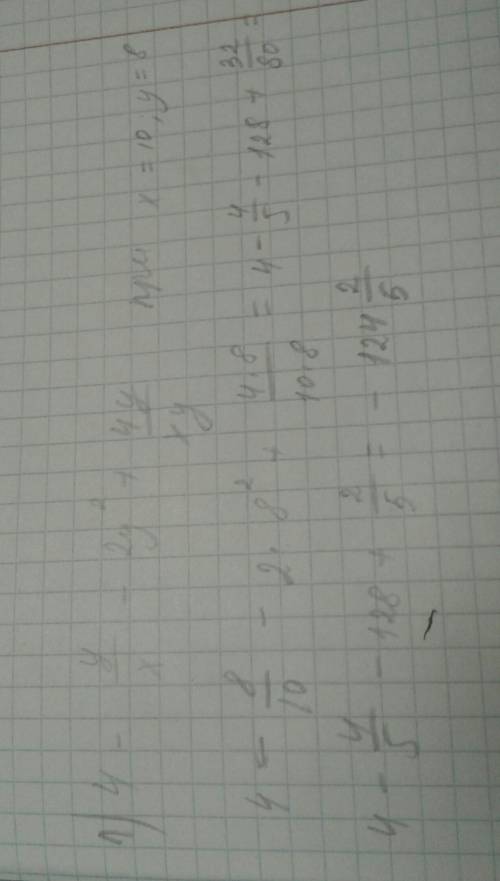 г) 4 - y/x - 2y² + 4y/xy при x = 10, y = 8
4 - 8/10 - 2·8² + 4·8/10·8 = 4 - 4/5 - 128 + 32/80 =
4 - 4/5 - 128 + 2/5 = - 124 2/5